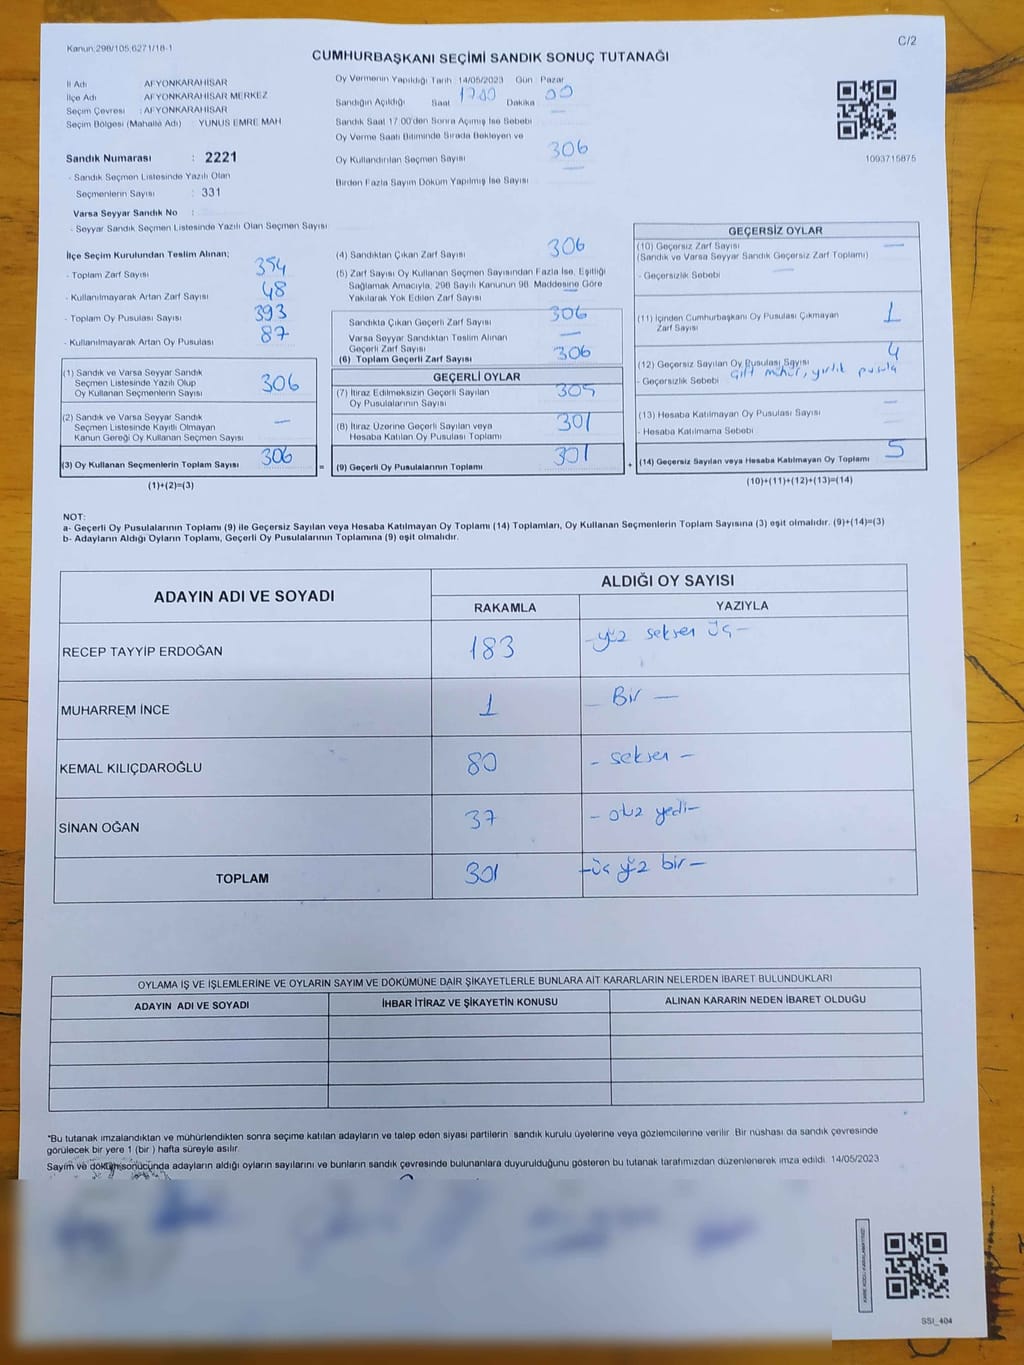 Kanun:298/105,6271/18-1
C/2
CUMHURBAŞKANI SEÇİMİ SANDIK SONUÇ TUTANAĞI
İl Adı AFYONKARAHİSAR
İlçe Adı AFYONKARAHİSAR MERKEZ
Seçim Çevresi : AFYONKARAHİSAR
Seçim Bölgesi (Mahalle Adı) YUNUS EMRE MAH
Sandık Numarası : 2221
- Sandık Seçmen Listesinde Yazılı Olan
Seçmenlerin Sayısı : 331
Varsa Seyyar Sandık No :
- Seyyar Sandık Seçmen Listesinde Yazılı Olan Seçmen Sayısı
Oy Vermenin Yapıldığı Tarih 14/05/2023 Gün : Pazar
Sandığın Açıldığı Saat 17:00 Dakika 00
Sandık Saat 17:00'den Sonra Açımış İse Sebebi
Oy Verme Saati Bitiminde Sırada Bekleyen ve
Oy Kullandırılan Seçmen Sayısı 306
Birden Fazla Sayım Döküm Yapılmış İse Sayısı —
1093715875
İlçe Seçim Kurulundan Teslim Alınan;
- Toplam Zarf Sayısı 354
- Kullanılmayarak Artan Zarf Sayısı 48
- Toplam Oy Pusulası Sayısı 393
- Kullanılmayarak Artan Oy Pusulası 87
(1) Sandık ve Varsa Seyyar Sandık
Seçmen Listesinde Yazılı Olup
Oy Kullanan Seçmenlerin Sayısı 306
(2) Sandık ve Varsa Seyyar Sandık
Seçmen Listesinde Kayıtlı Olmayan
Kanun Gereği Oy Kullanan Seçmen Sayısı —
(3) Oy Kullanan Seçmenlerin Toplam Sayısı 306
(1)+(2)=(3)
(4) Sandıktan Çıkan Zarf Sayısı 306
(5) Zarf Sayısı Oy Kullanan Seçmen Sayısından Fazla İse, Eşitliği
Sağlamak Amacıyla, 298 Sayılı Kanunun 98. Maddesine Göre
Yakılarak Yok Edilen Zarf Sayısı —
Sandıkta Çıkan Geçerli Zarf Sayısı 306
Varsa Seyyar Sandıktan Teslim Alınan
Geçerli Zarf Sayısı —
(6) Toplam Geçerli Zarf Sayısı 306
GEÇERLİ OYLAR
(7) İtiraz Edilmeksizin Geçerli Sayılan
Oy Pusulalarının Sayısı
(8) İtiraz Üzerine Geçerli Sayılan veya
Hesaba Katılan Oy Pusulası Toplamı 301
= (9) Geçerli Oy Pusulalarının Toplamı 301
GEÇERSİZ OYLAR
(10) Geçersiz Zarf Sayısı —
(Sandık ve Varsa Seyyar Sandık Geçersiz Zarf Toplamı)
- Geçersizlik Sebebi —
(11) İçinden Cumhurbaşkanı Oy Pusulası Çıkmayan
Zarf Sayısı 1
(12) Geçersiz Sayılan Oy Pusulası Sayısı 4
- Geçersizlik Sebebi Çift mühür, yırtık pusula
(13) Hesaba Katılmayan Oy Pusulası Sayısı —
- Hesaba Katılmama Sebebi —
+ (14) Geçersiz Sayılan veya Hesaba Katılmayan Oy Toplamı 5
(10)+(11)+(12)+(13)=(14)
NOT:
a- Geçerli Oy Pusulalarının Toplamı (9) ile Geçersiz Sayılan veya Hesaba Katılmayan Oy Toplamı (14) Toplamları, Oy Kullanan Seçmenlerin Toplam Sayısına (3) eşit olmalıdır. (9)+(14)=(3)
b- Adayların Aldığı Oyların Toplamı, Geçerli Oy Pusulalarının Toplamına (9) eşit olmalıdır.
ADAYIN ADI VE SOYADI
ALDIĞI OY SAYISI
RAKAMLA YAZIYLA
RECEP TAYYİP ERDOĞAN 183 -yüz seksen üç-
MUHARREM İNCE 1 - Bir -
KEMAL KILIÇDAROĞLU 80 - seksen -
SİNAN OĞAN 37 - otuz yedi-
TOPLAM 301 -üç yüz bir-
OYLAMA İŞ VE İŞLEMLERİNE VE OYLARIN SAYIM VE DÖKÜMÜNE DAİR ŞİKAYETLERLE BUNLARA AİT KARARLARIN NELERDEN İBARET BULUNDUKLARI
ADAYIN ADI VE SOYADI İHBAR İTİRAZ VE ŞİKAYETİN KONUSU ALINAN KARARIN NEDEN İBARET OLDUĞU
*Bu tutanak imzalandıktan ve mühürlendikten sonra seçime katılan adayların ve talep eden siyasi partilerin sandık kurulu üyelerine veya gözlemcilerine verilir. Bir nüshası da sandık çevresinde
görülecek bir yere 1 (bir ) hafta süreyle asılır.
Sayım ve döküm sonucunda adayların aldığı oyların sayılarını ve bunların sandık çevresinde bulunanlara duyurulduğunu gösteren bu tutanak tarafımızdan düzenlenerek imza edildi. 14/05/2023
SSI_404